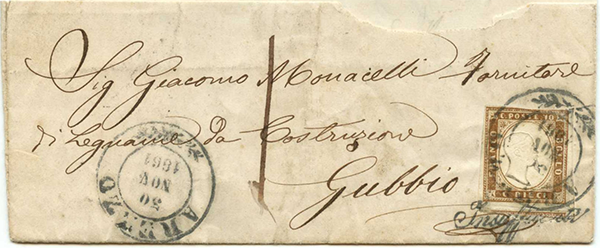 Sig Giacomo Monacelli Fornitore
di Legname da Costruzione
Gubbio
1
AREZZO
30
NOV
1861
C. POSTE 10